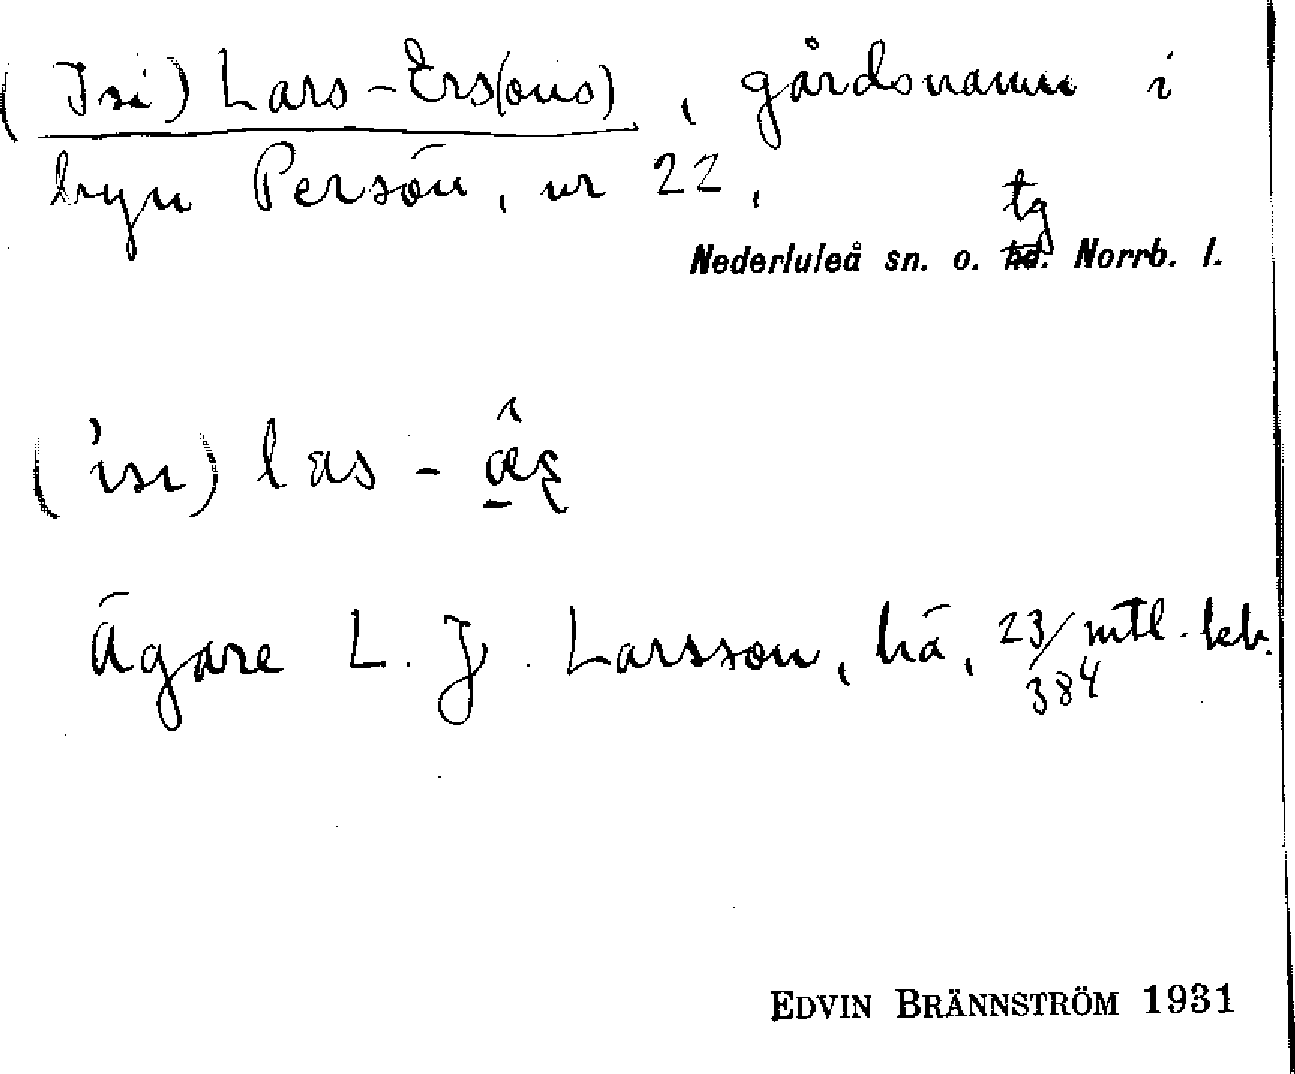 (Isi) Lars-Ers(ons), gårdsnamn i
byn Persön, nr 22,
tg
Nederluleå sn. o. hd. Norrb. l.
('isi) las - 
Ägare L. J. Larsson, hä, 23/384 mtl.
EDVIN BRÄNNSTRÖM 1931